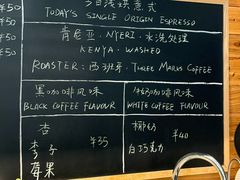 ¥50
今日浅烘意式
TODAY'S SINGLE ORIGIN ESPRESSO
¥50
肯尼亚·NYERI·水洗处理
KENYA·WASHED
ROASTER:西班牙·THREE MARKS COFFEE
黑咖啡风味
BLACK COFFEE FLAVOUR
牛奶咖啡风味
WHITE COFFEE FLAVOUR
杏
李子
莓果
¥35
椰奶
白巧克力
¥40